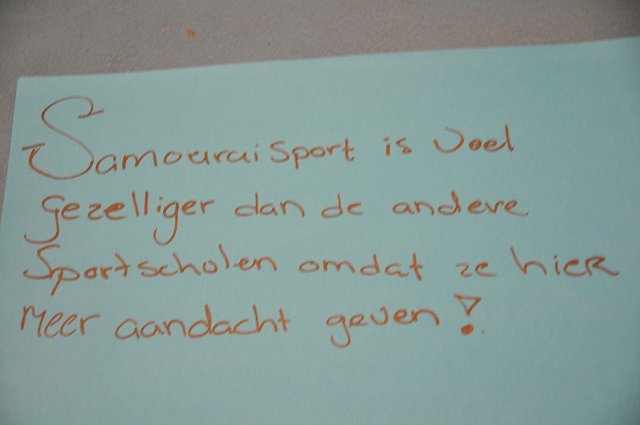 Samouraisport is voel
gezelliger dan de andere
Sportscholen omdat ze hier
meer aandacht geven!